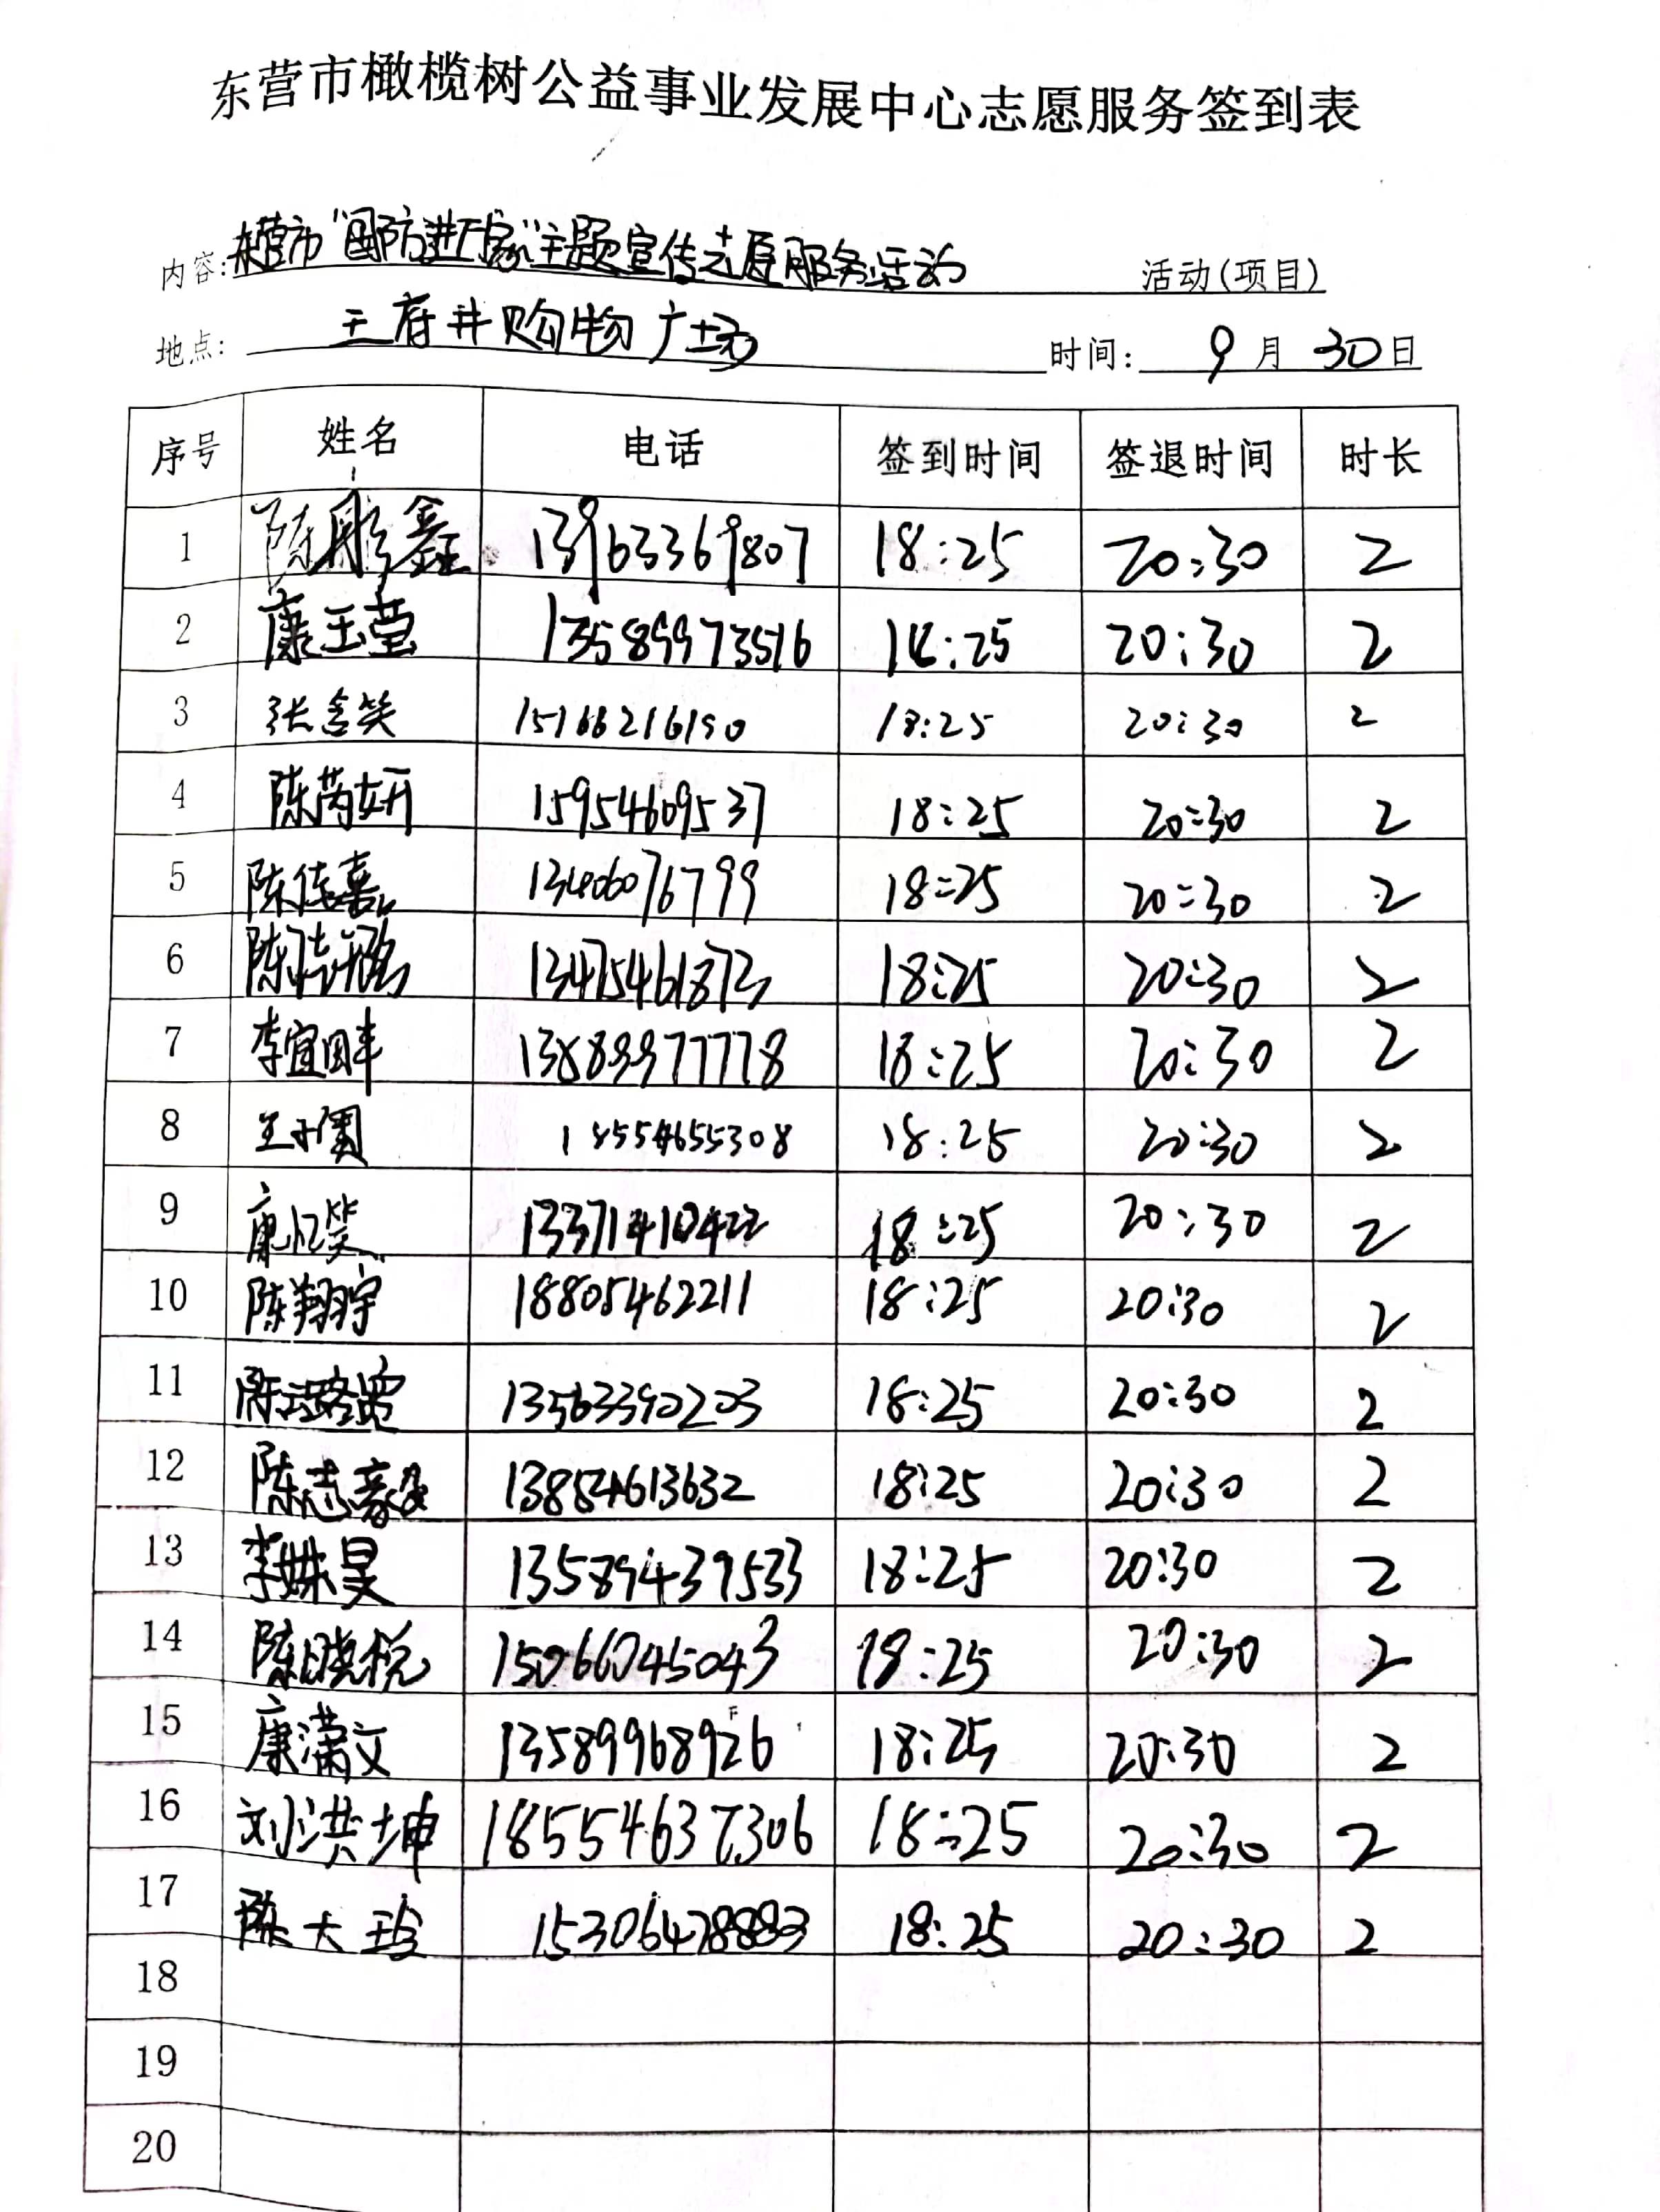 东营市橄榄树公益事业发展中心志愿服务签到表
内容: 东营市“国防进万家”主题宣传志愿服务活动 活动(项目)
地点: 王府井购物广场 时间: 9月30日
序号 姓名 电话 签到时间 签退时间 时长
1 陈彤鑫 13963369807 18:25 20:30 2
2 康玉莹 13589973516 18:25 20:30 2
3 张含笑 15166216190 18:25 20:30 2
4 陈芮妍 15954609537 18:25 20:30 2
5 陈佳嘉 13406076799 18:25 20:30 2
6 陈 13475461873 18:25 20:30 2
7 李宜田丰 13589977778 18:25 20:30 2
8 王 18554655308 18:25 20:30 2
9 康忆笑 18:25 20:30 2
10 陈翔宇 18805462211 18:25 20:30 2
11 陈 13563390203 18:25 20:30 2
12 陈志毅 13854613632 18:25 20:30 2
13 李姝昊 13589439533 18:25 20:30 2
14 陈晓悦 15066045043 18:25 20:30 2
15 康潇文 13589968926 18:25 20:30 2
16 刘洪坤 18554637306 18:25 20:30 2
17 陈大玲 18:25 20:30 2
18
19
20